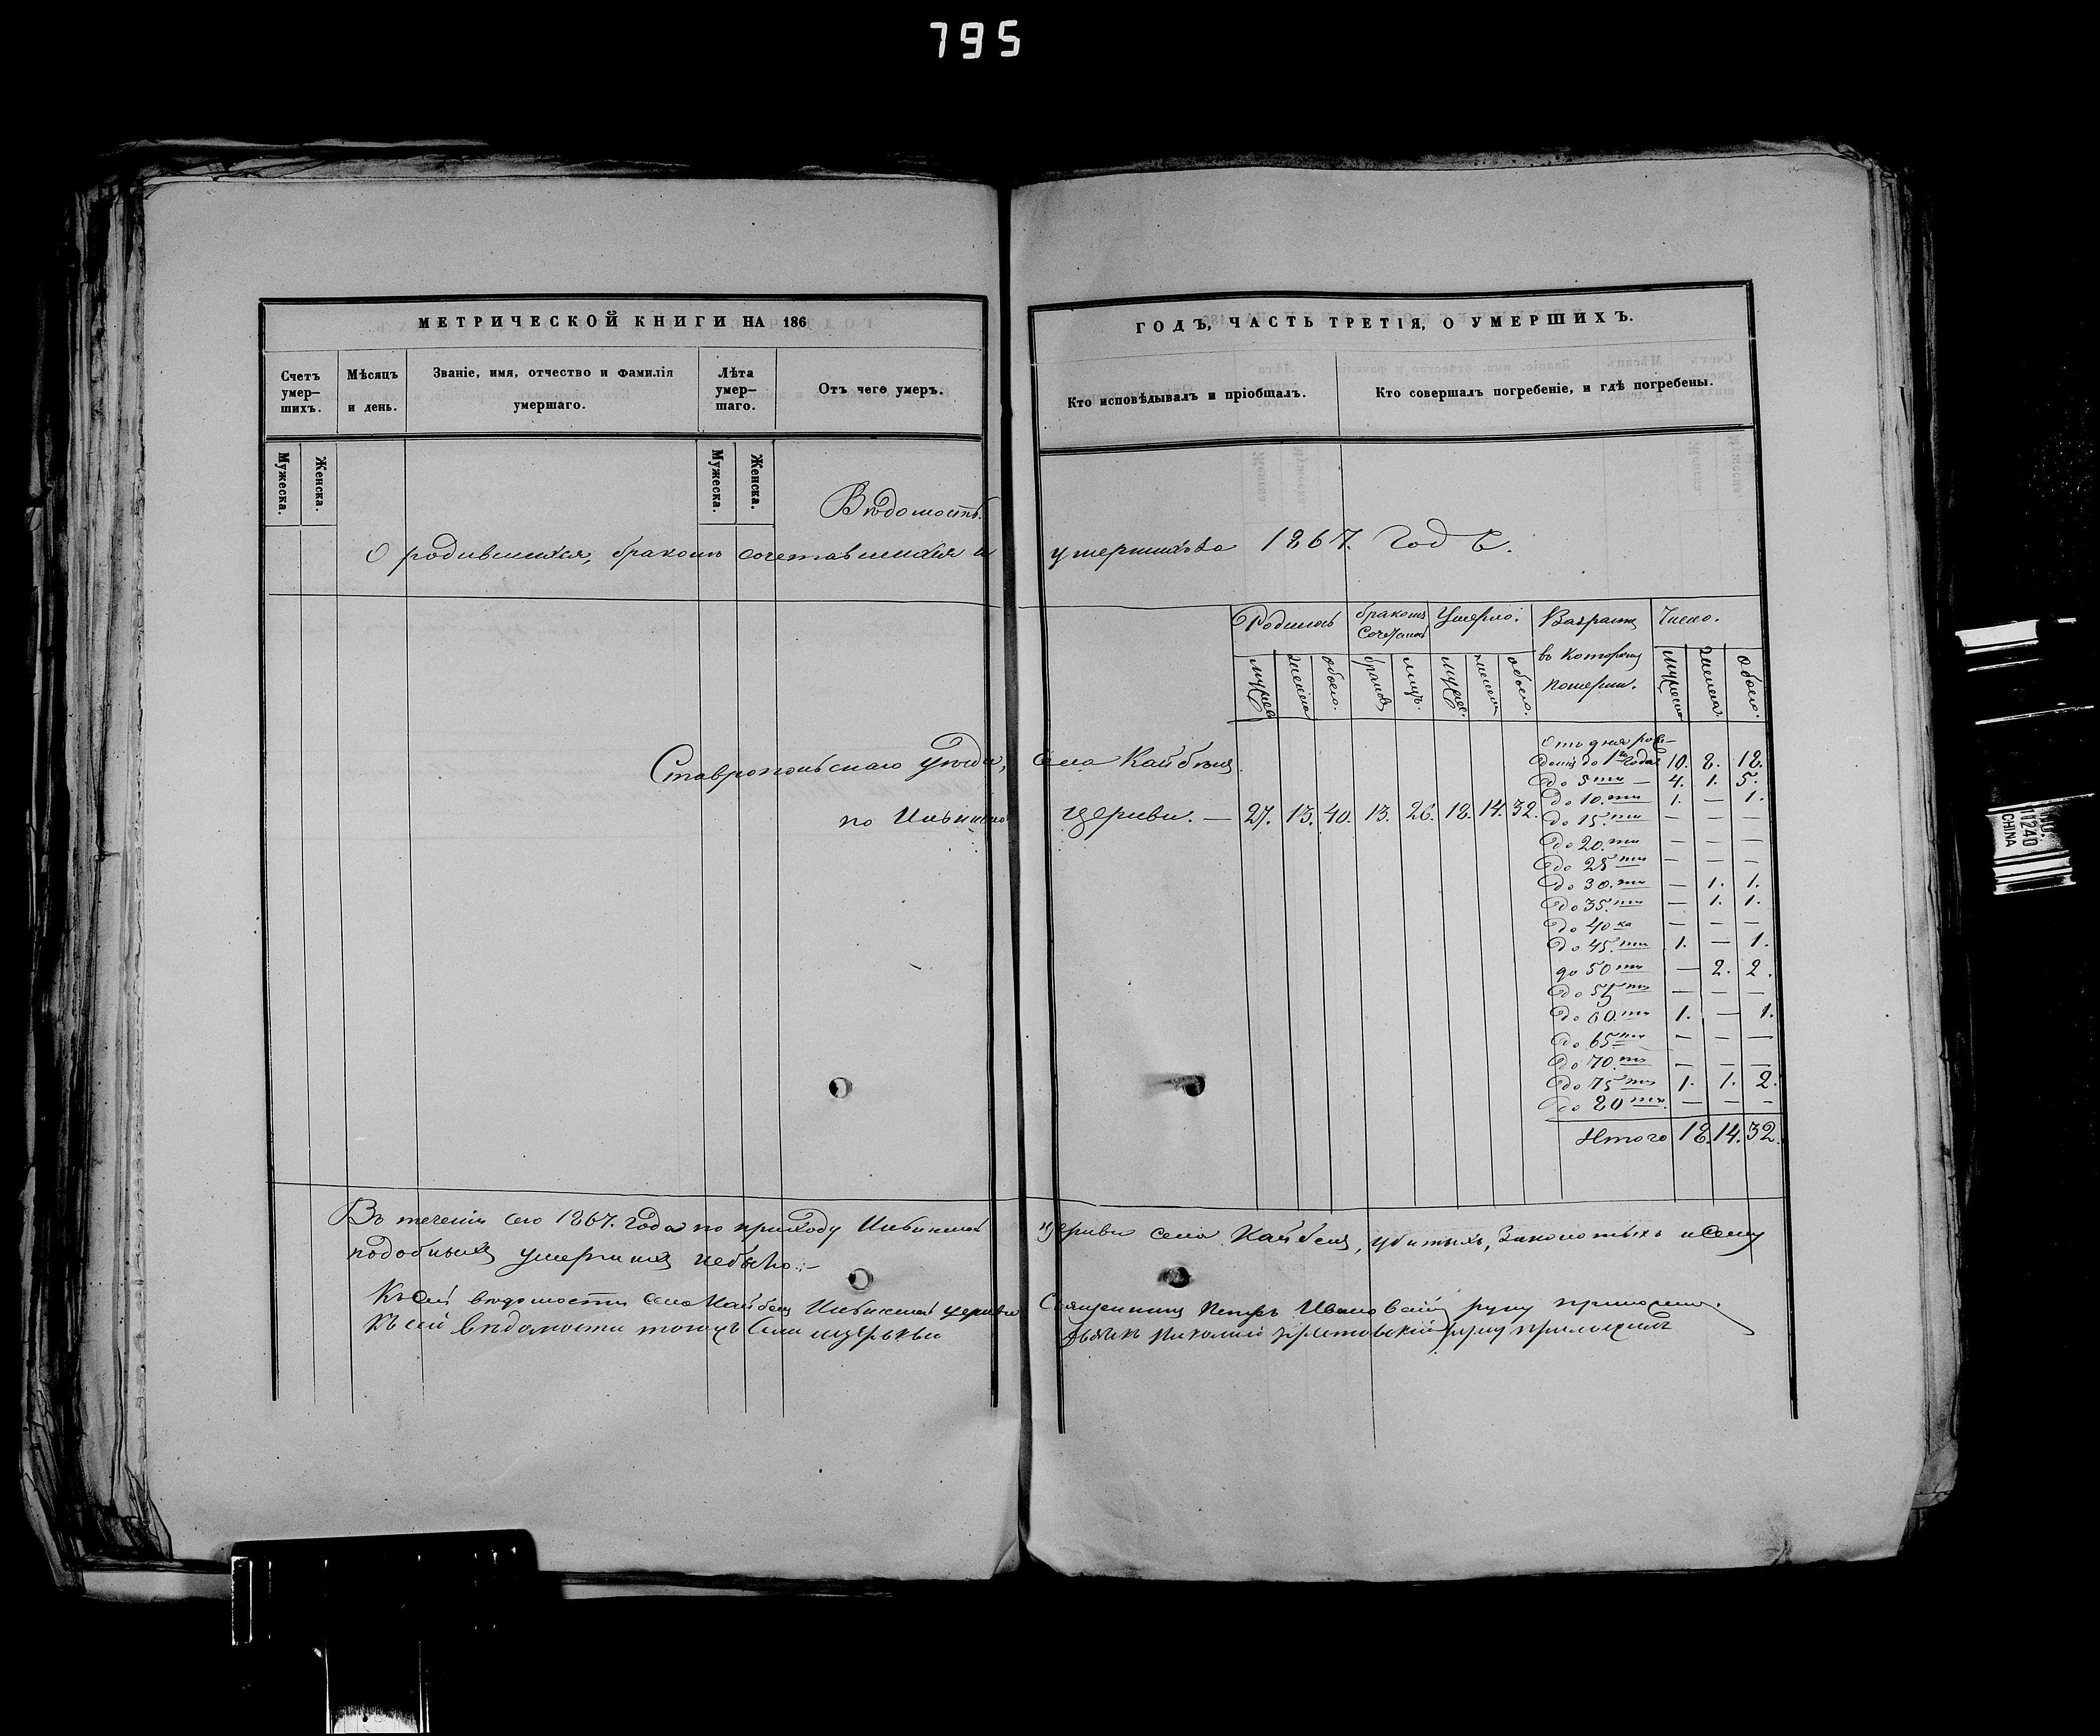 795
МЕТРИЧЕСКОЙ КНИГИ НА 186
ГОДЪ, ЧАСТЬ ТРЕТІЯ, О УМЕРШИХЪ.
Счетъ умер— шихъ.
Мѣсяцъ и день.
Званіе, имя, отчество и фамилія умершаго.
Лѣта умер— шаго.
Отъ чего умеръ.
Кто исповѣдывалъ и пріобщалъ.
Кто совершалъ погребеніе, и гдѣ погребены.
Мужеска. Женска. Мужеска. Женска.
Вѣдомость.
О родившихся, бракомъ сочетавшихся и умершихъ за 1867. годъ.
Родилось бракомъ Сочеталось Умерло. Возрастъ Число.
въ которомъ
померли.
мужес женска обоего. браковъ лицъ. мужес. женска обоего. мужеска женска. обоего.
Ставропольскаго уѣзда, села Кайбелъ
по Ильинской Церкви. — 27. 13. 40. 13. 26. 18. 14. 32.
Отъ дня рож—
денія до 1го года 10. 8. 18.
до 5ти — 4. 1. 5.
до 10.ти 1. — 1.
до 15.ти — — —
до 20.ти — — —
до 25ти — — —
до 30.ти — 1. 1.
до 35.ти — 1. 1.
до 40ка — — —
до 45.ти 1. — 1.
до 50ти — 2. 2.
до 55ти — — —
до 60.ти 1. — 1.
до 65ти — — —
до 70.ти — — —
до 75ти 1. 1. 2.
до 80ти. — — —
Итого 18. 14. 32.
Въ теченіи сего 1867. года по приходу Ильинской церкви села Кайбелъ, убитыхъ, и сему
подобныхъ умершихъ небыло.—
Къ сей вѣдомости села Кайбелъ Ильинской церкви Священникъ Петръ руку приложилъ.
Къ сей вѣдомости тогожъ села церькви дьячекъ Николай руку приложилъ
NO. 11240
CHINA